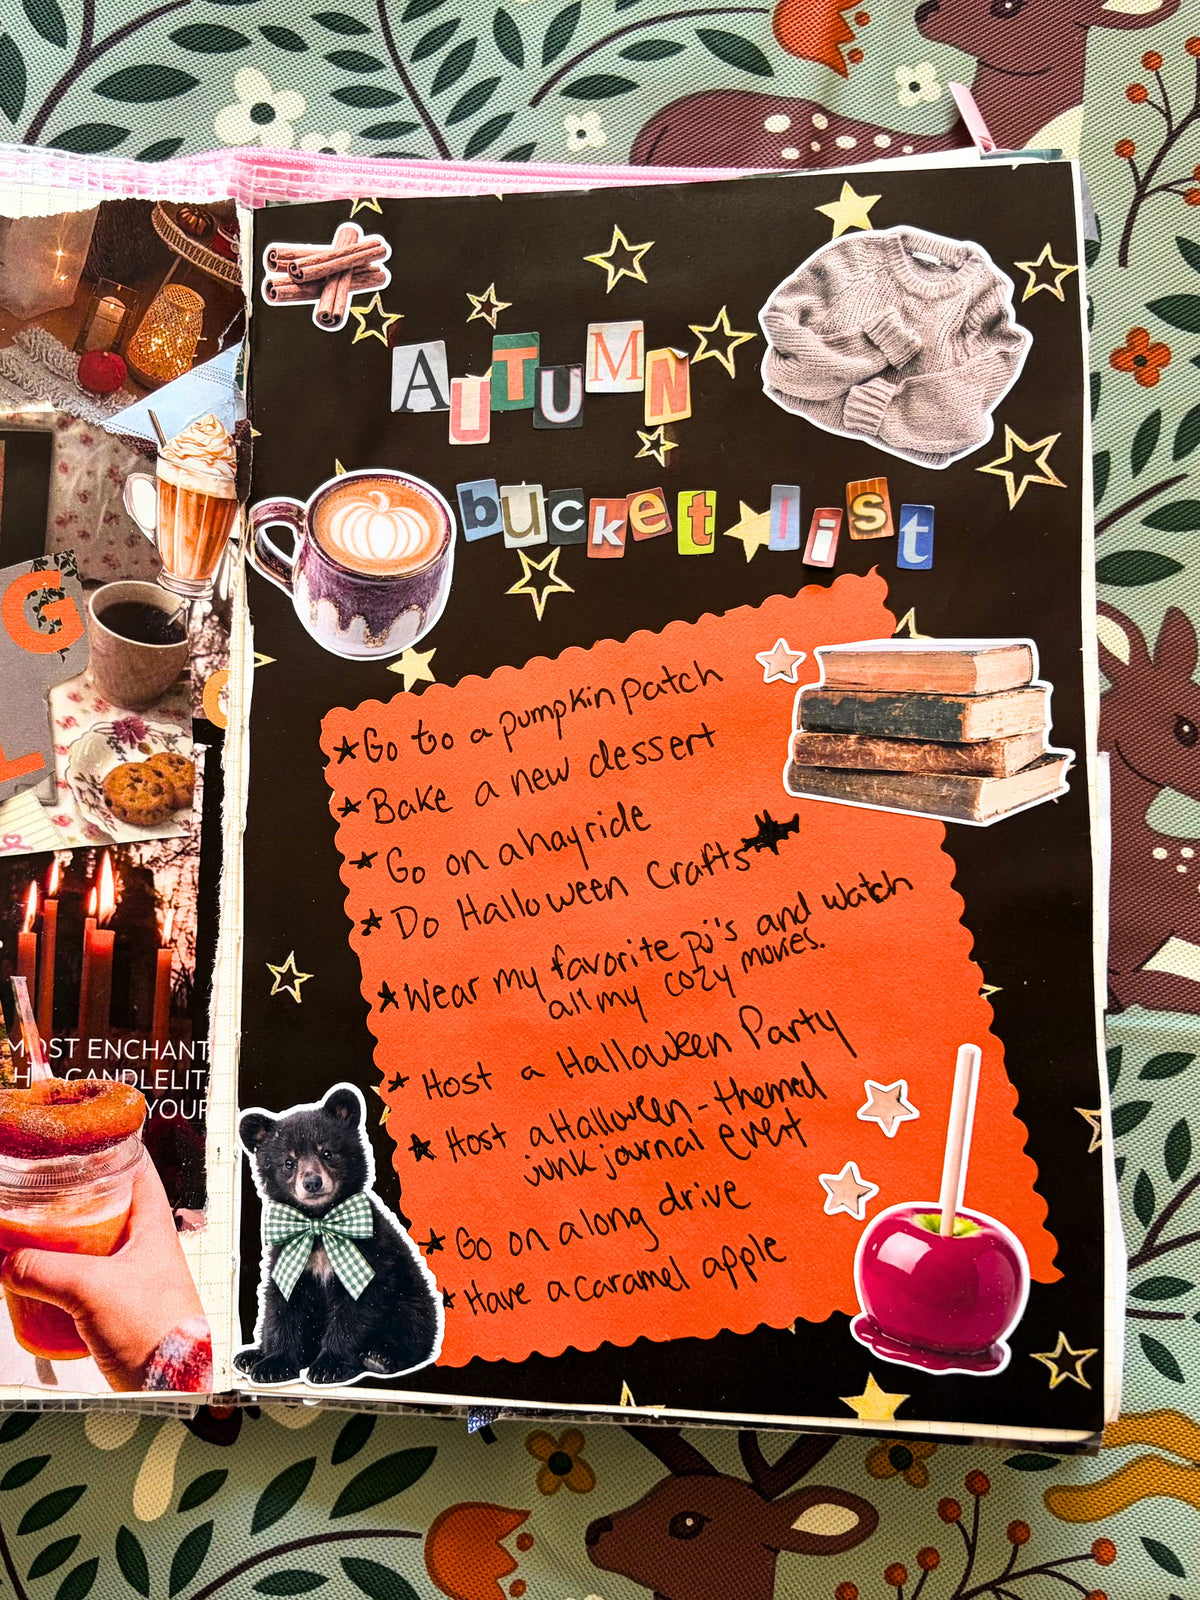 AUTUMN
bucket list
★Go to a pumpkin patch
★Bake a new dessert
★Go on a hayride
★Do Halloween Crafts
★Wear my favorite pj's and watch
all my cozy movies.
★Host a Halloween Party
★Host a Halloween-themed
junk journal event
★Go on a long drive
★Have a caramel apple
G
L
MOST ENCHANT
CANDLELIT
YOUR